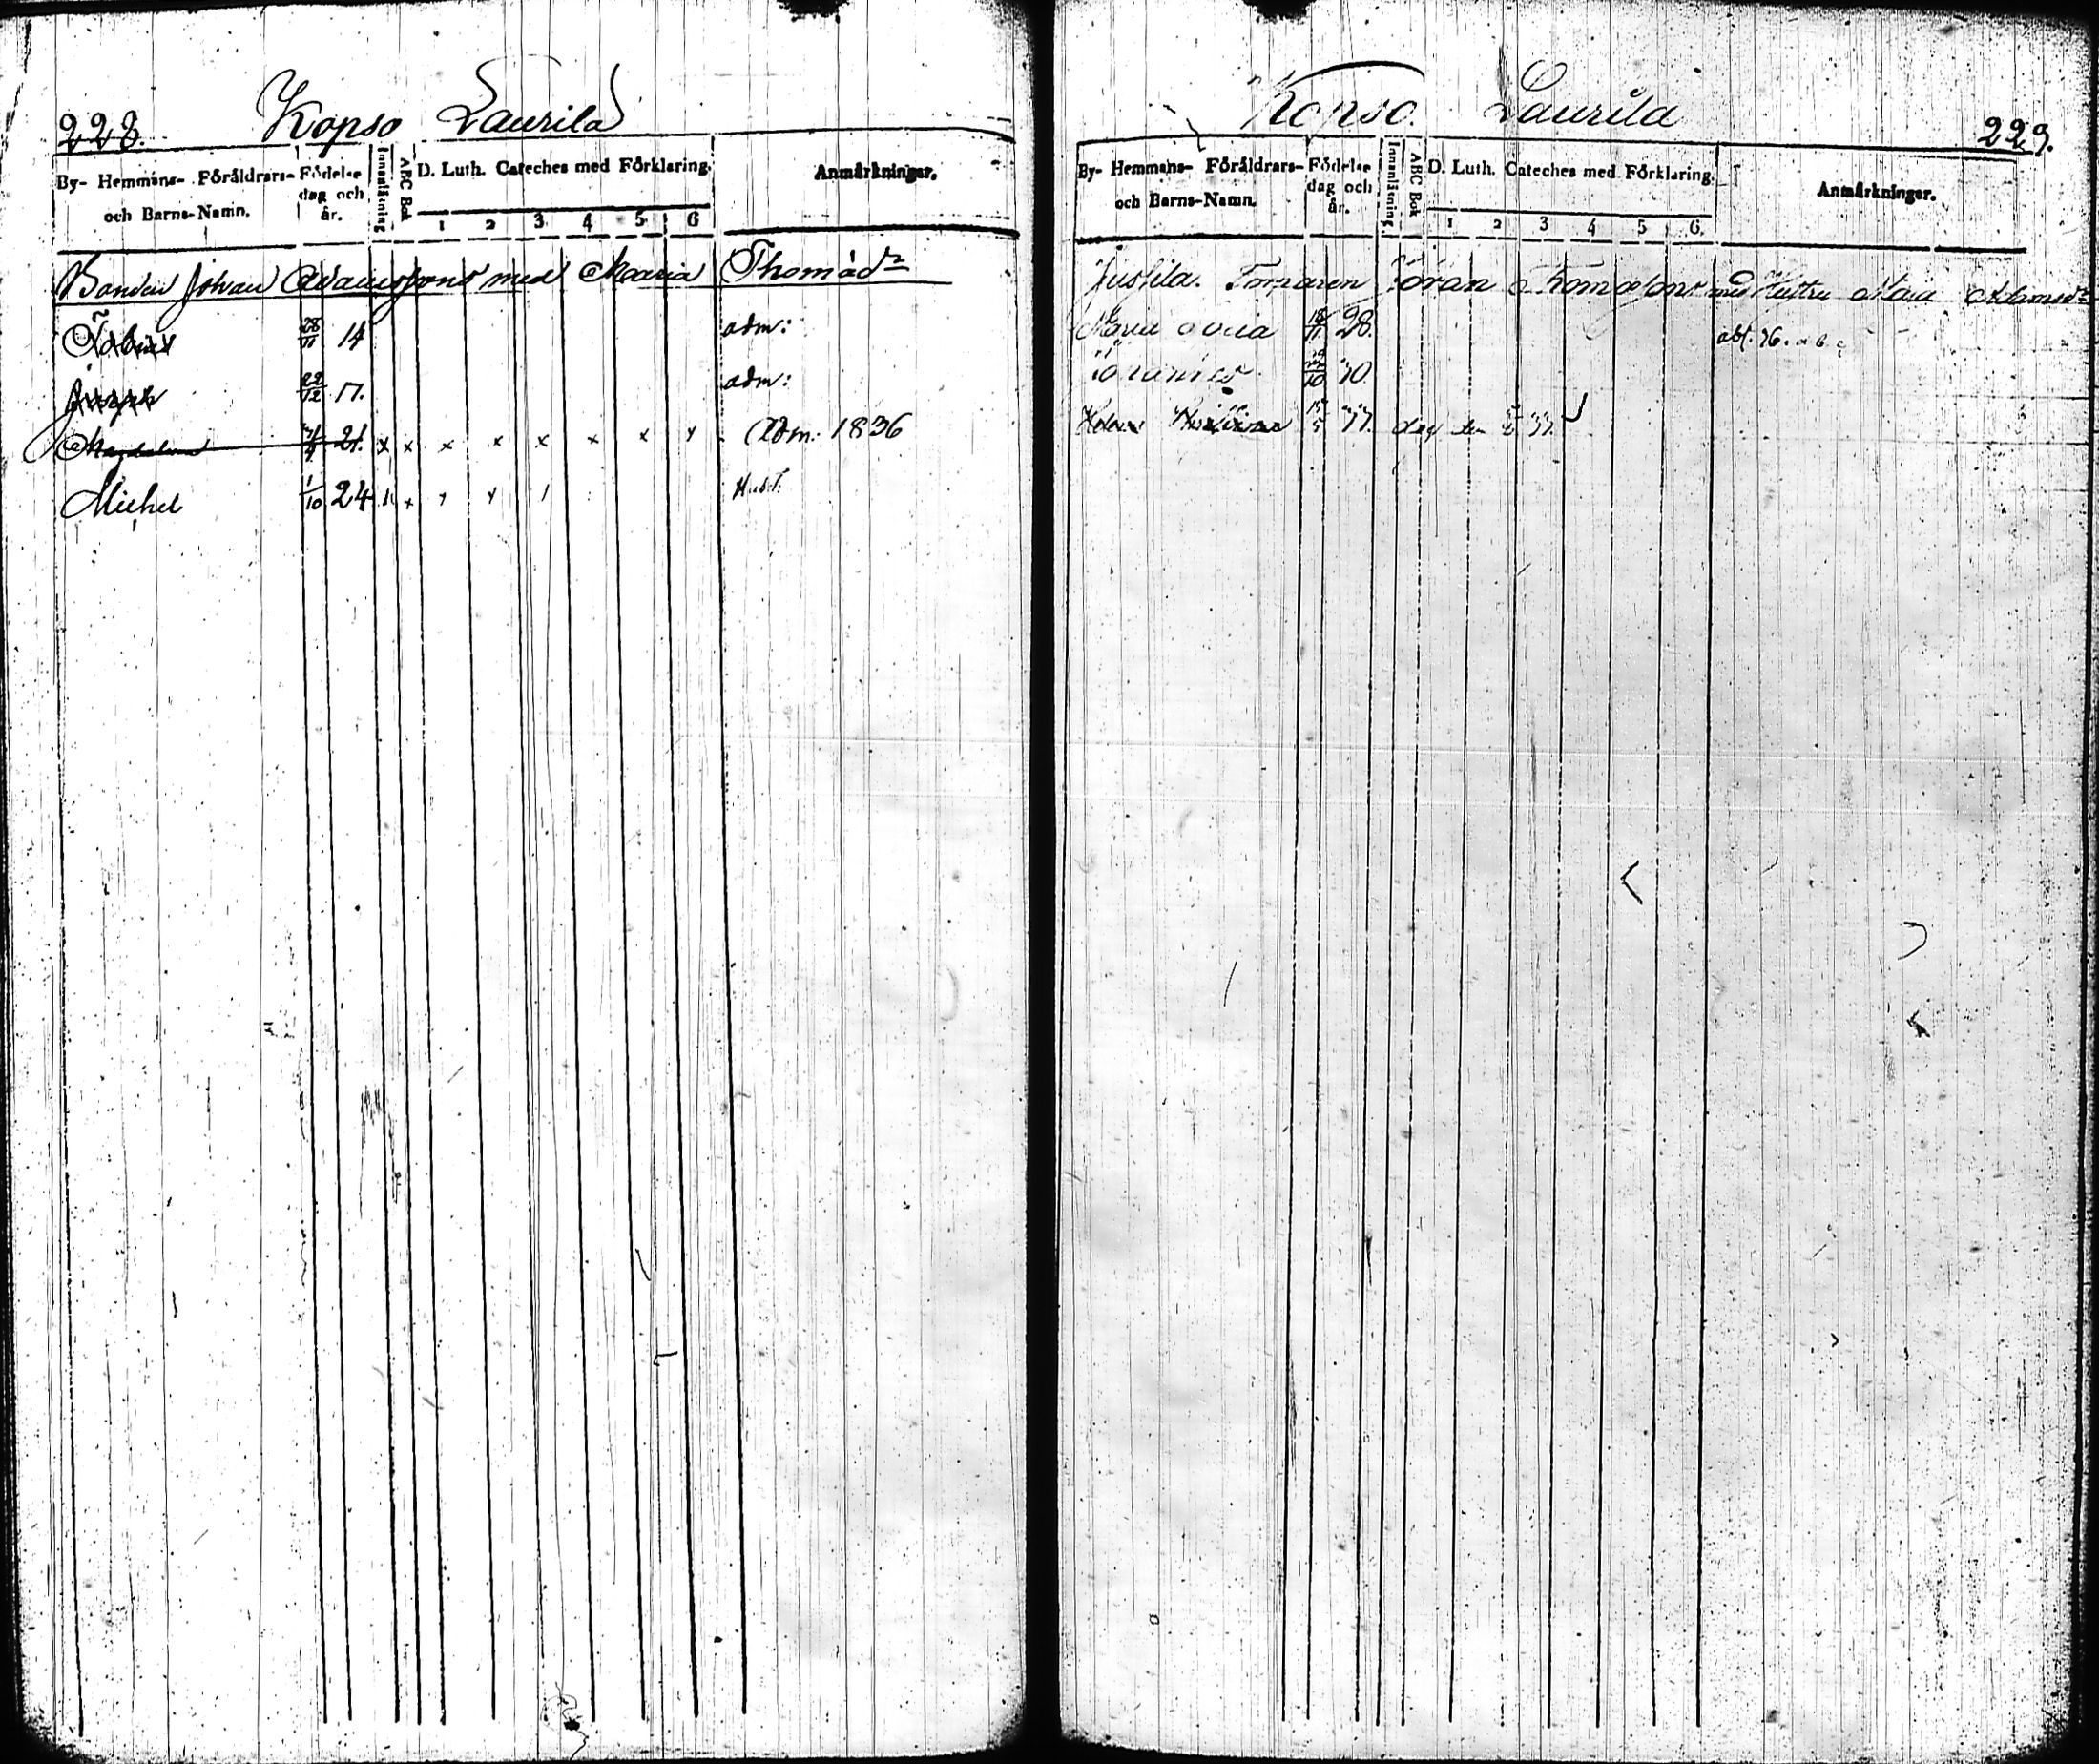 228. Kopso Laurila
By- Hemmans- Föräldrars- och Barns-Namn. Födelse dag och år. Innanläsning ABC Bok D. Luth. Cateches med Förklaring. 1 2 3 4 5 6 Anmärkningar.
Bonden Johan Adamsson med Maaria Thomäd:r
Tobias 28/11 14 adm:
Joseph 22/12 17. adm:
Magdalena 21. x x x x x x x x Adm. 1836
Michel 1/10 24
Kopso. Laurila 229.
By- Hemmans- Föräldrars- och Barns-Namn. Födelse dag och år. Innanläsning ABC Bok D. Luth. Cateches med Förklaring. 1 2 3 4 5 6. Anmärkningar.
Jussila. Torparen Göran Thomasson med Hustru Maria Adamsd:r
Maria 18/11 28.
30.
Helena 37. död den 37.